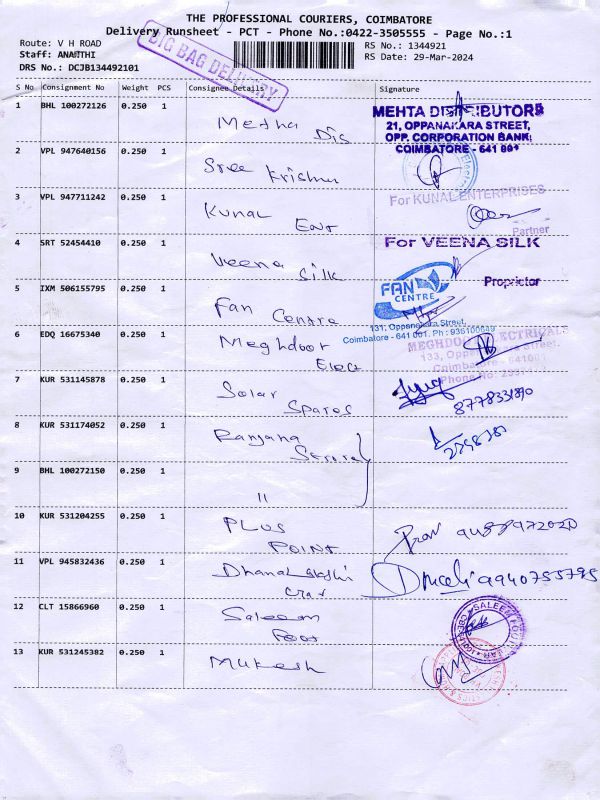 THE PROFESSIONAL COURIERS, COIMBATORE
Delivery Runsheet - PCT - Phone No.:0422-3505555 - Page No.:1
Route: V H ROAD
RS No.: 1344921
Staff: ANANTHI
RS Date: 29-Mar-2024
DRS No.: DCJB134492101
BIG BAG DELIVERY
S No Consignment No Weight PCS Consignee Details Signature
1 BHL 100272126 0.250 1
Metha Dis
MEHTA DISTRIBUTORS
21, OPPANAKARA STREET,
OPP. CORPORATION BANK,
COIMBATORE - 641 001
2 VPL 947640156 0.250 1
Sree Krishna
3 VPL 947711242 0.250 1
Kunal Ent
For KUNAL ENTERPRISES
Partner
4 SRT 52454410 0.250 1
Veena Silk
For VEENA SILK
Proprietor
5 IXM 506155795 0.250 1
Fan Centre
FAN CENTRE
131, Oppanakara Street,
Coimbatore - 641 001. Ph : 936100649
6 EDQ 16675340 0.250 1
Meghdoot Elect
MEGHDOOT ELECTRICALS
133, Oppanakara Street.
Coimbatore - 641001
Phone No:
7 KUR 531145878 0.250 1
Solar Spares
8778331890
8 KUR 531174052 0.250 1
Ranjana Stores
9 BHL 100272150 0.250 1
"
10 KUR 531204255 0.250 1
PLUS POINT
9488972020
11 VPL 945832436 0.250 1
Dhanalakshi
9940755795
12 CLT 15866960 0.250 1
Saleem Foot
SALEEM FOOTWEAR
13 KUR 531245382 0.250 1
Mukesh